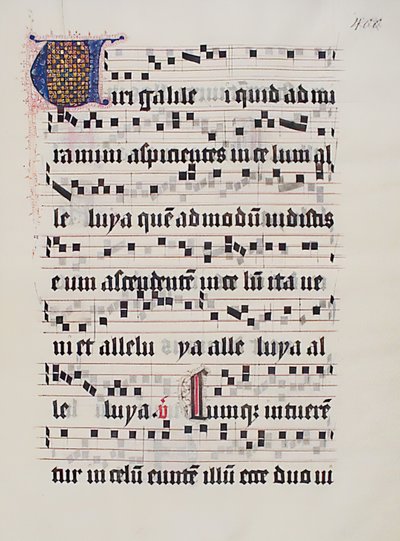 Viri galile i quid ad mi
ramini aspicientes in ce lum al
le luya quē ad modū vidistis
e um ascendentē in ce lū ita ve
ni et allelu ya alle luya al
le luya. v Cumq; intuerē
tur in celū euntē illū ecce duo vi